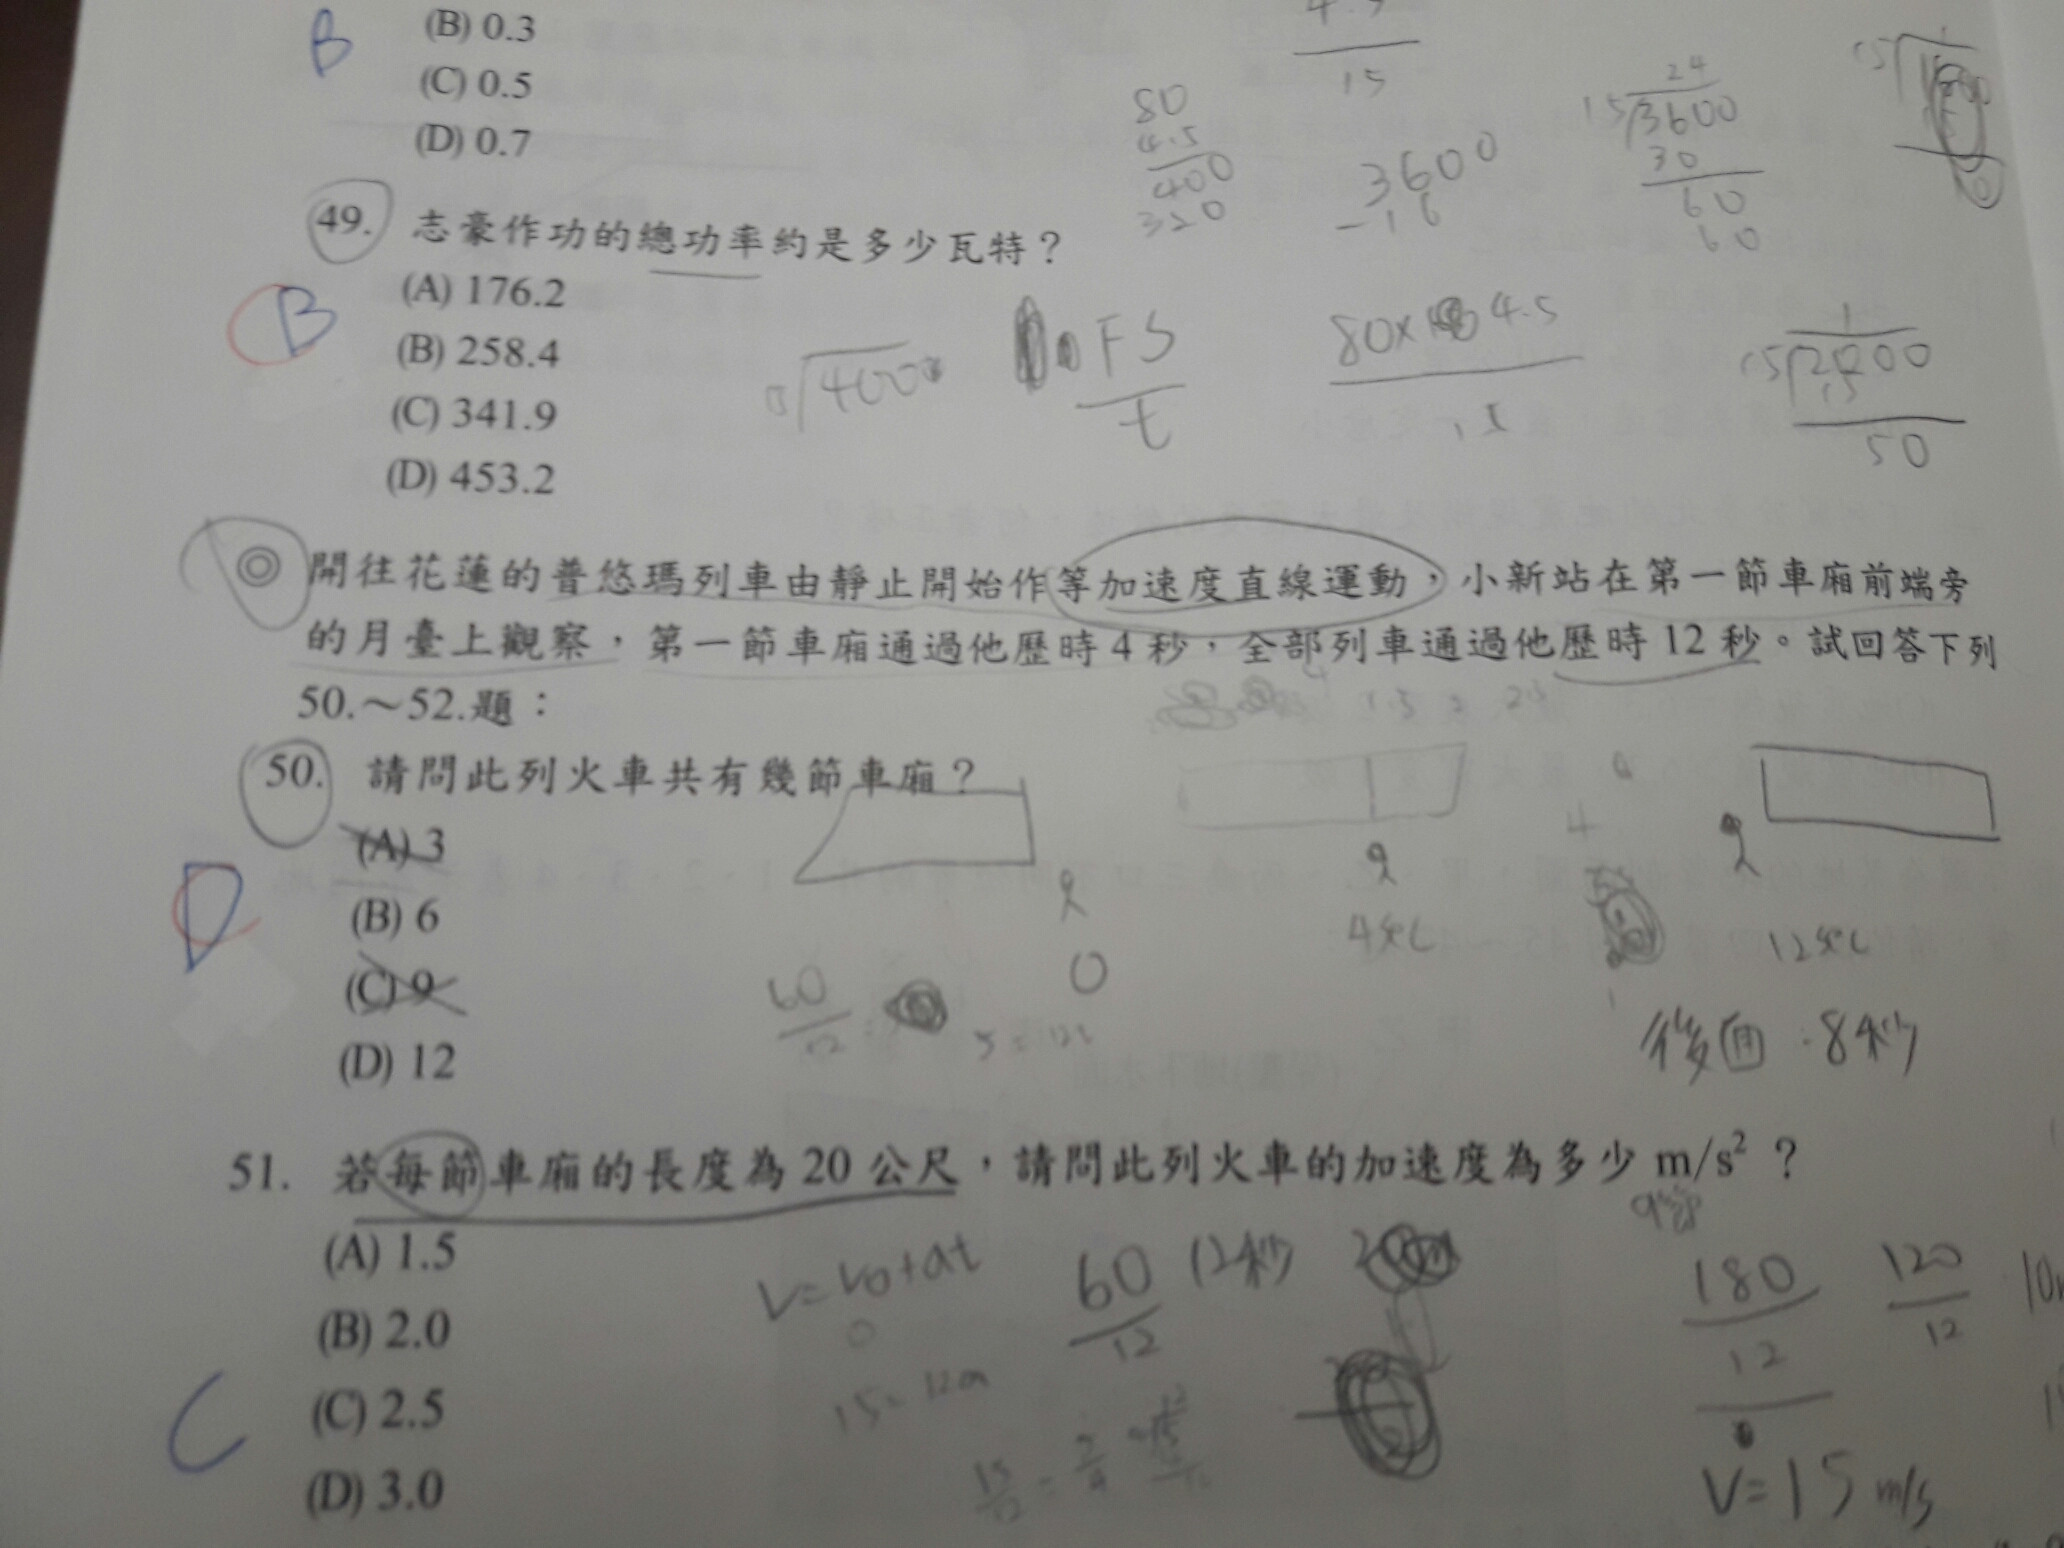 B
(B) 0.3
(C) 0.5
(D) 0.7
15
80
4.5
400
320
3600
-16
24
15 3600
30
60
60
49. 志豪作功的總功率約是多少瓦特？
B
(A) 176.2
(B) 258.4
(C) 341.9
(D) 453.2
400
FS
t
80× 4.5
15
1
15 2000
15
50
◎開往花蓮的普悠瑪列車由靜止開始作等加速度直線運動，小新站在第一節車廂前端旁
的月臺上觀察，第一節車廂通過他歷時 4 秒，全部列車通過他歷時 12 秒。試回答下列
50.～52.題：
50. 請問此列火車共有幾節車廂？
D
(A) 3
(B) 6
(C) 9
(D) 12
0
4sec
12sec
60
12
後面：8秒
51. 若每節車廂的長度為 20 公尺，請問此列火車的加速度為多少 m/s² ？
9節
C
(A) 1.5
(B) 2.0
(C) 2.5
(D) 3.0
V=V0+at
0
15=12a
60 12秒
12
180
12
120
12
V=15 m/s